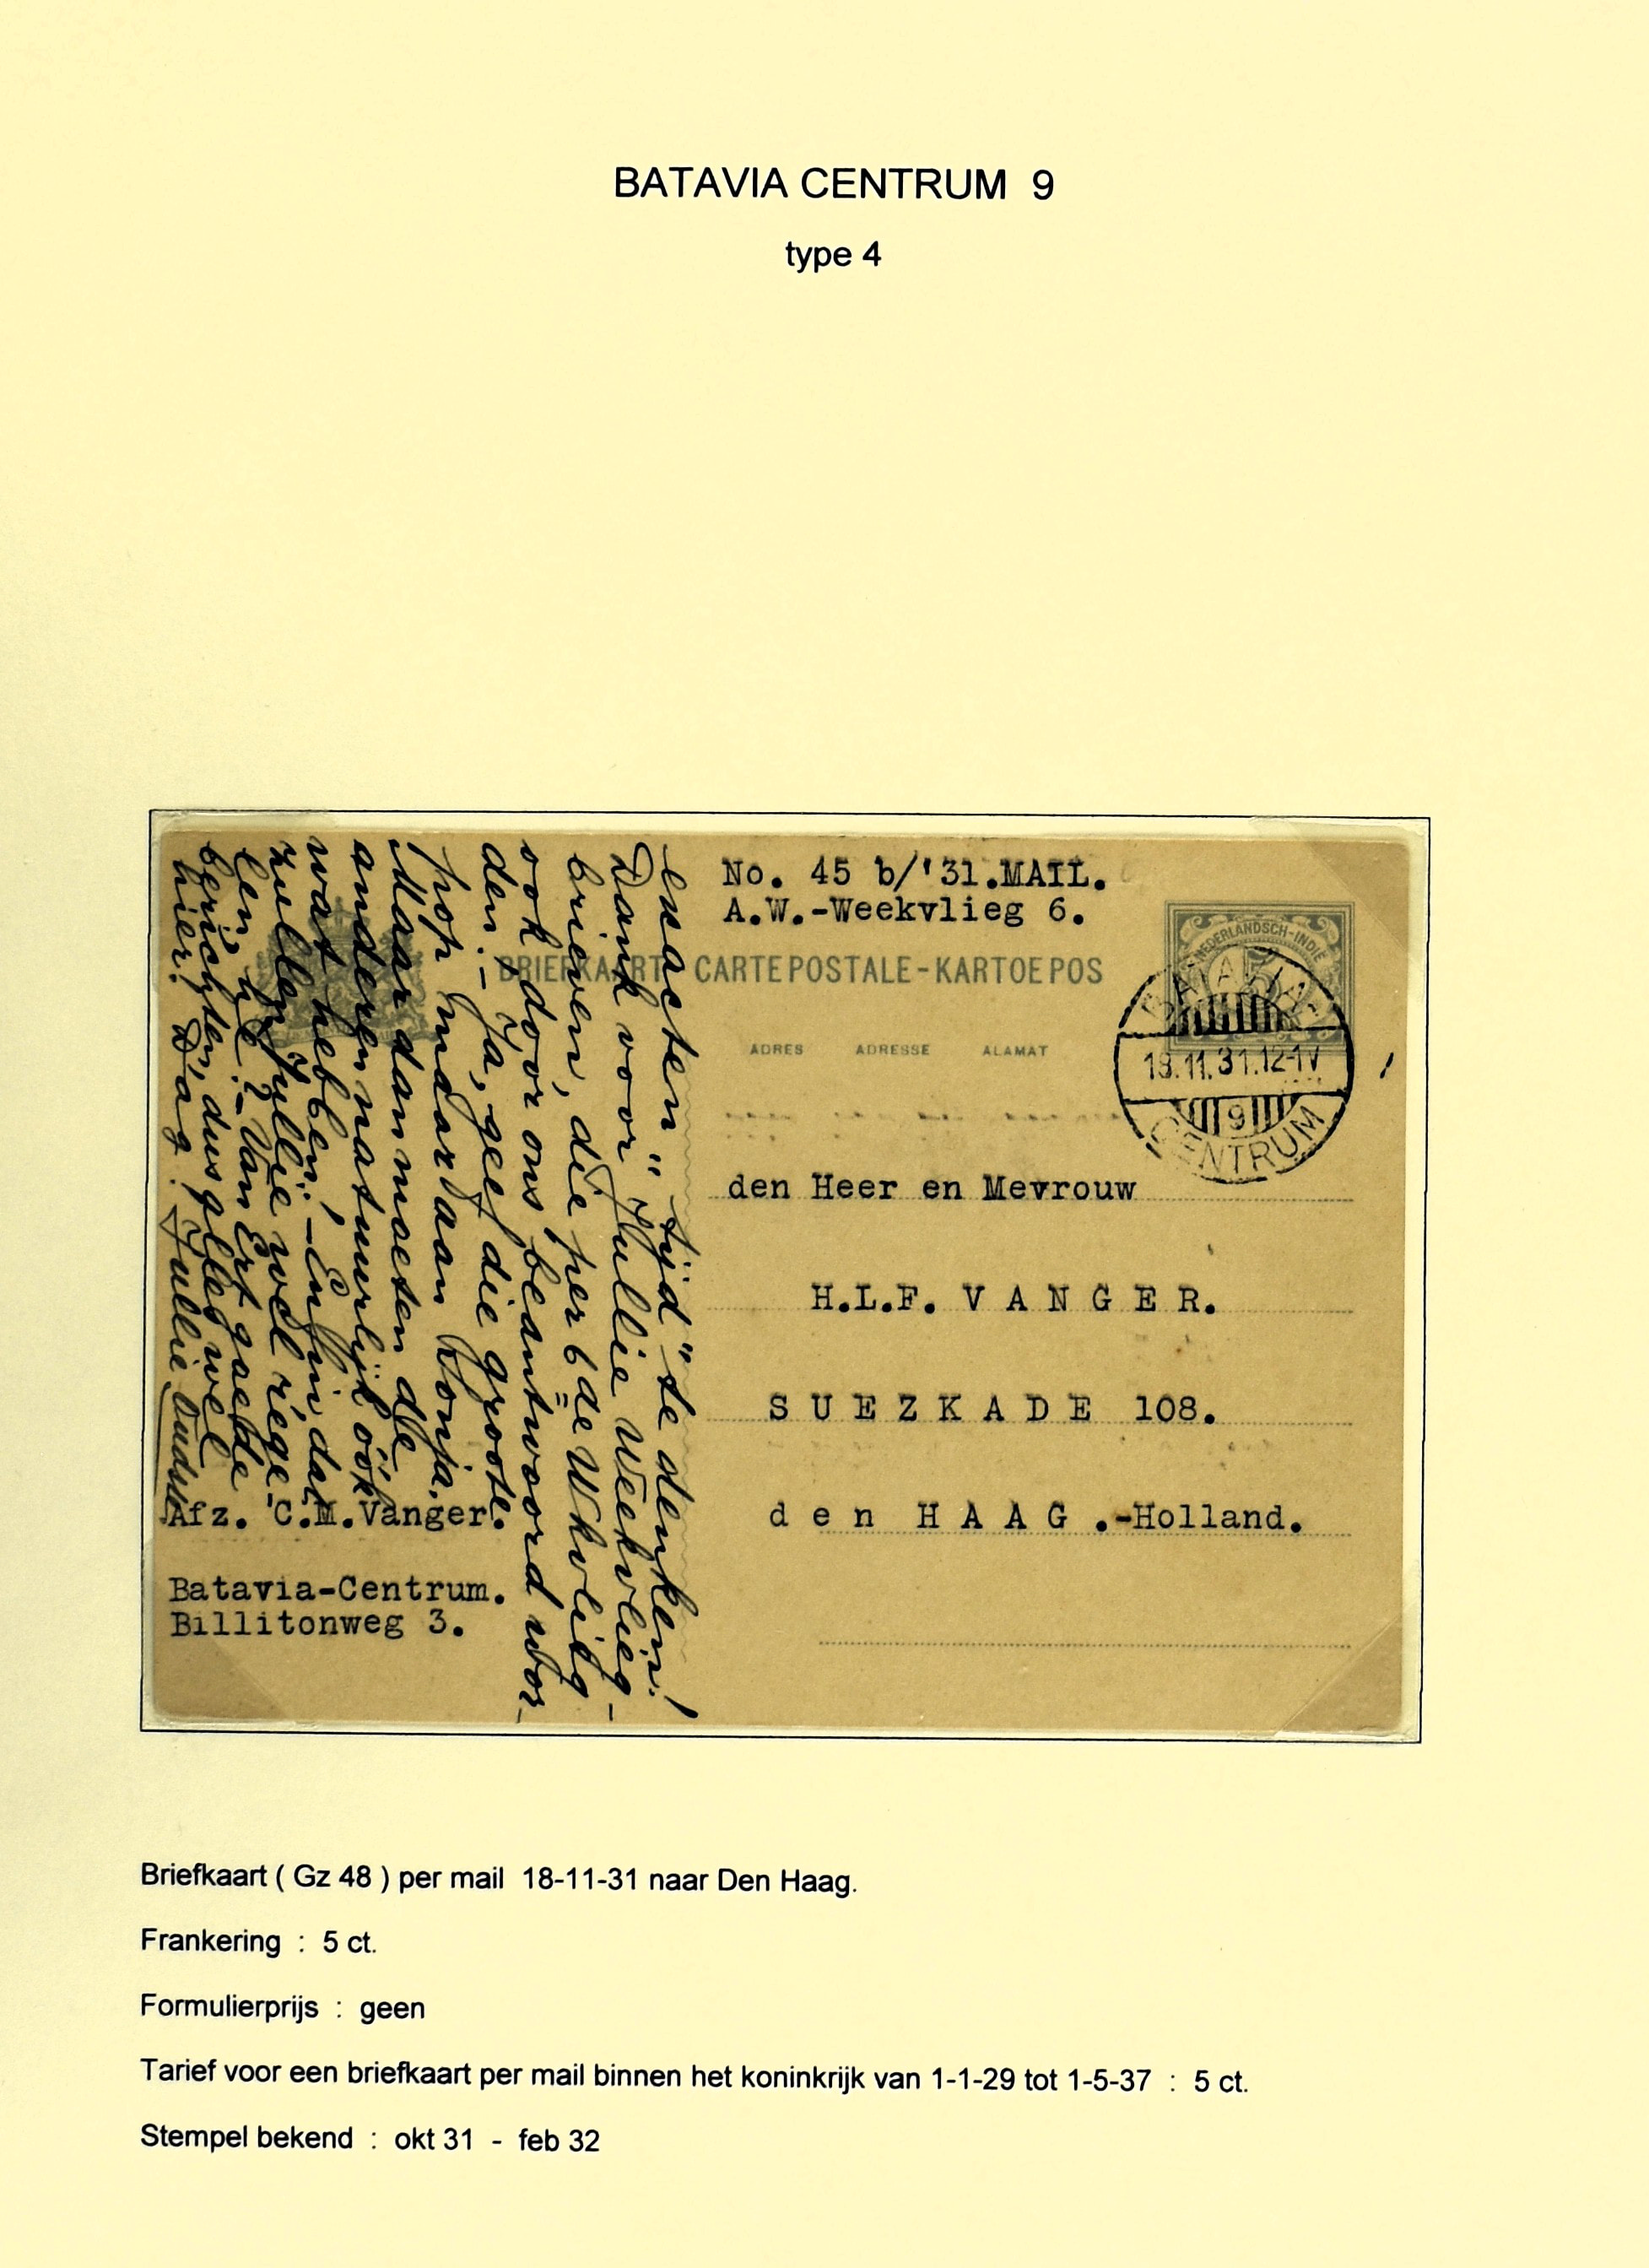 BATAVIA CENTRUM 9
type 4
No. 45 b/'31.MAIL.
A.W.-Weekvlieg 6.
NEDERLANDSCH-INDIE
BRIEFKAART CARTE POSTALE-KARTOE POS
ADRES ADRESSE ALAMAT
BATAVIA
18.11.31.12-1V
9
CENTRUM
den Heer en Mevrouw
H.L.F. V A N G E R.
S U E Z K A D E 108.
d e n H A A G .-Holland.
tijd" te denken!
Dank voor Jullie Weekvlieg-
brieven, die per 6de Wkvlieg
ook dóór ons beantwoord wor-
den.- Ja, geef die groote
pop maar aan Konja.
Maar dan moeten de
anderen natuurlijk óók
wat hebben,- Enfin dat
zullen Jullie wel rege-
len, hè?- Van Ert goede
berichten, dus gleg wel
hier! Dag! Jullie Oudste
Afz. C.M.Vanger.
Batavia-Centrum.
Billitonweg 3.
Briefkaart ( Gz 48 ) per mail 18-11-31 naar Den Haag.
Frankering : 5 ct.
Formulierprijs : geen
Tarief voor een briefkaart per mail binnen het koninkrijk van 1-1-29 tot 1-5-37 : 5 ct.
Stempel bekend : okt 31 - feb 32